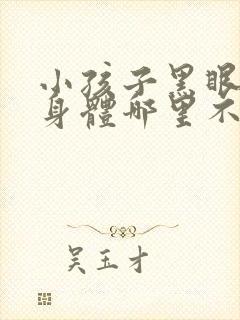 小孩子黑眼
身體哪里不
吴玉才